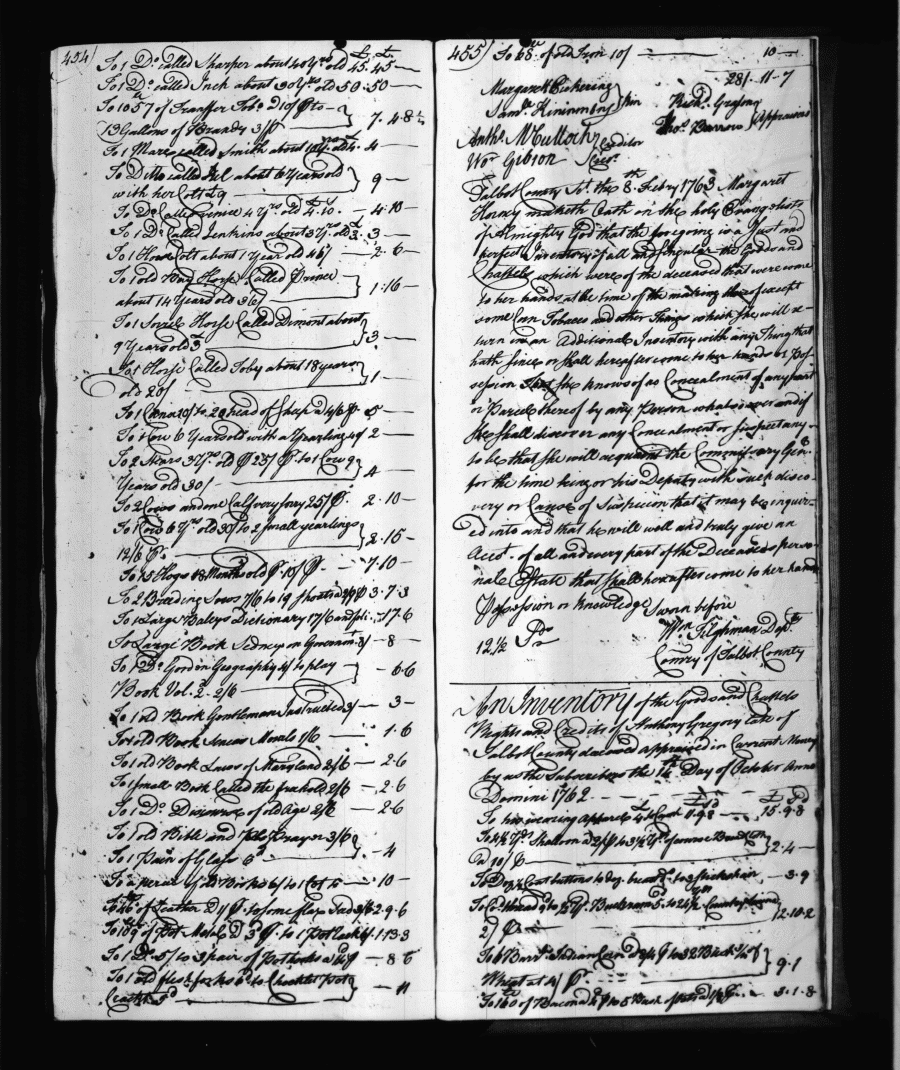 454
To 1 Do. called Sharper about 40 Yrs old £45. 45 —
To 1 Do. called Jack about 30 Yrs old 50 : 50 —
To 1057 of Transfer Tobo. @ 10/ to
13 Gallons of Brandy 3/ 7. 4. 8½
To 1 Mare called Smith about old 4. 4 —
To Ditto called about 6 Years old
with her Colt £9 9 —
To Do. Called 4 Yrs old 4.10. — 4:10 —
To 1 Do. Called Jenkins about 3 Yrs old 3. 3 —
To 1 Horse Colt about 1 Year old 46/ — 2. 6 —
To 1 old Bay Horse Called Prince
about 14 Years old 36/ 1:16 —
To 1 Sorril Horse Called Dimont about
9 Years old 3 3 —
To 1 Horse Called Toby about 18 years
old 20/ 1 —
To 1 10/ to 20 head of Sheep a 4/6 5 —
To 1 Cow 6 Years old with a Yearling 2 —
To 2 Stears 3 Yrs old @ 25/ to 1 Cow 9
Years old 30/ 4 —
To 2 Cows and one Calf very 25/ 2 . 10 —
To 1 Cow 6 Yrs old 30/ to 2 small yearlings
12/6 2. 15 —
To 15 Hogs 18 Months old 10/ — 7. 10 —
To 2 Breeding Sows 7/6 to 19 Shoats 3. 7. 3
To 1 Large Baleys Dictionary 17/6 . 17. 6
To Large Book Sidney on Governmt. 8/ — 8 —
To 1 Do. Gordon Geography 4/ to play
Book Vol. 2. 2/6 — 6. 6
To 1 old Book Gentleman Instructed 3/ — 3 —
To 1 old Book Senecas Morals 1/6 — 1. 6
To 1 old Book Laws of Maryland 2/6 — 2. 6
To 1 small Book Called the freehold 2/6 — 2. 6
To 1 Do. Discourse of old Age 2/6 — 2. 6
To 1 old Bible and Prayer 3/6
To 1 Pain of Glass 6d — 4
To a parcel of old Books 6/ to 1 Cot — 10 —
To of Leather @ 1/ to some flax 2. 9. 6
To 109 of Pot Mettle @ 3d to 1 1. 13. 3
To 1 Do. 5/ to 3 pair of Pothooks — 8. 6
To 1 old flesh forks 6d to 1 pot
5d — 11
455 To 68 of old Iron 10/ 10 —
281 . 11 . 7
Margaret Pickering
Saml. Kininmont Kin Richd. Gregory
Thos. Barrow Appraisers
Anth. McCulloch Creditor
Wor Gibson
Talbot County Sct. the 8th Febry 1763 Margaret
Honey maketh Oath on the holy Evangelists
of Almighty God that the foregoing is a Just and
perfect Inventory of all and singular the Goods and
Chattels which were of the deceased that were come
to her hands at the time of the making thereof except
some Corn Tobacco and other Things which she will re=
turn in an Additional Inventory with any Thing that
hath since or shall hereafter come to her hands or Pos=
session that she knows of no Concealment of any part
or Parcel thereof by any Person whatsoever and if
she shall discover any Concealment or suspect any
to be that she will acquaint the Commissary Gen
for the time being or his Deputy with such disco=
very or Cause of Suspicion that it may be inquir=
ed into and that she will well and truly give an
Acct. of all and every part of the Deceaseds perso=
nale Estate that shall hereafter come to her hands
Possession or knowledge Sworn before
Wm Tilghman Depty
12½ Pds Comry of Talbot County
An Inventory of the Goods and Chattels
Rights and Credits of Anthony Gregory late of
Talbot County deceased appraised in Current Money
by us the Subscribers the 14th Day of October Anno
Domini 1762 £ s d £ s d
To his wearing apparel 15. 9. 8
To 4½ Yds Shalloon a 2/ to 3½ Yds
@ 10/6 2. 4 —
To Doz Coat buttons to doz breast Do. to 3 — 3. 9
To thread to Yds Buckram
2/ 12. 10. 2
To 6 Barrs. Indian Corn to 32 Bush of
Wheat at 4/ 9. 1
To 160 of Bacon to 5 Bush of 3. 1. 8